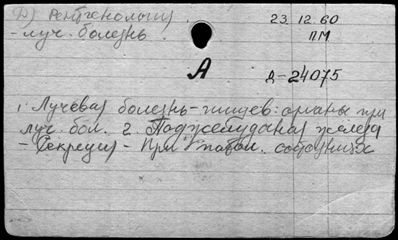 Д) Рентгенология
23.12.60
- луч. болезнь.
ПМ
А
Д-24075
1. Лучевая болезнь - пищев. органы при
луч. бол. 2. Поджелудочная железа
- Секреция - При патол. состояниях